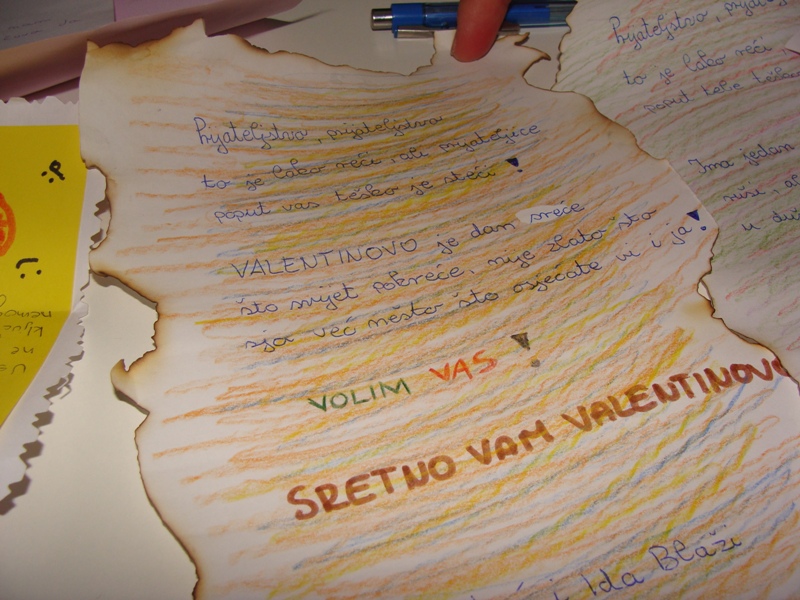 Prijateljstvo, prijateljstvo
to je lako reći ali prijateljice
poput vas teško je steći!
VALENTINOVO je dan sreće
što svijet pokreće, nije zlato što
sja već nešto što osjećate vi i ja!
VOLIM VAS!
SRETNO VAM VALENTINOVO
i Ida Blaži
Prijateljstvo,
to je lako reći
poput
Ima jedan
u
:P
:)
ne